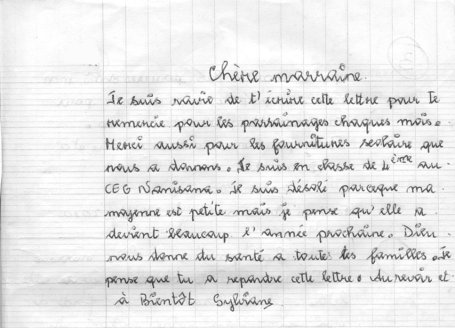 Chère marraine.
Je suis ravie de t'écrire cette lettre pour te
remercie pour les parrainages chaques mois.
Merci aussi pour les fournitures scolaire que
nous a donnons. Je suis en classe de 4ème au
CEG Nanisana. Je suis désolé parceque ma
moyenne est petite mais je pense qu'elle a
devient beaucoup l'année prochaine. Dieu
nous donne du santé a toutes les familles. Je
pense que tu a repondre cette lettre. Au revoir et
à Bientôt Sylviane